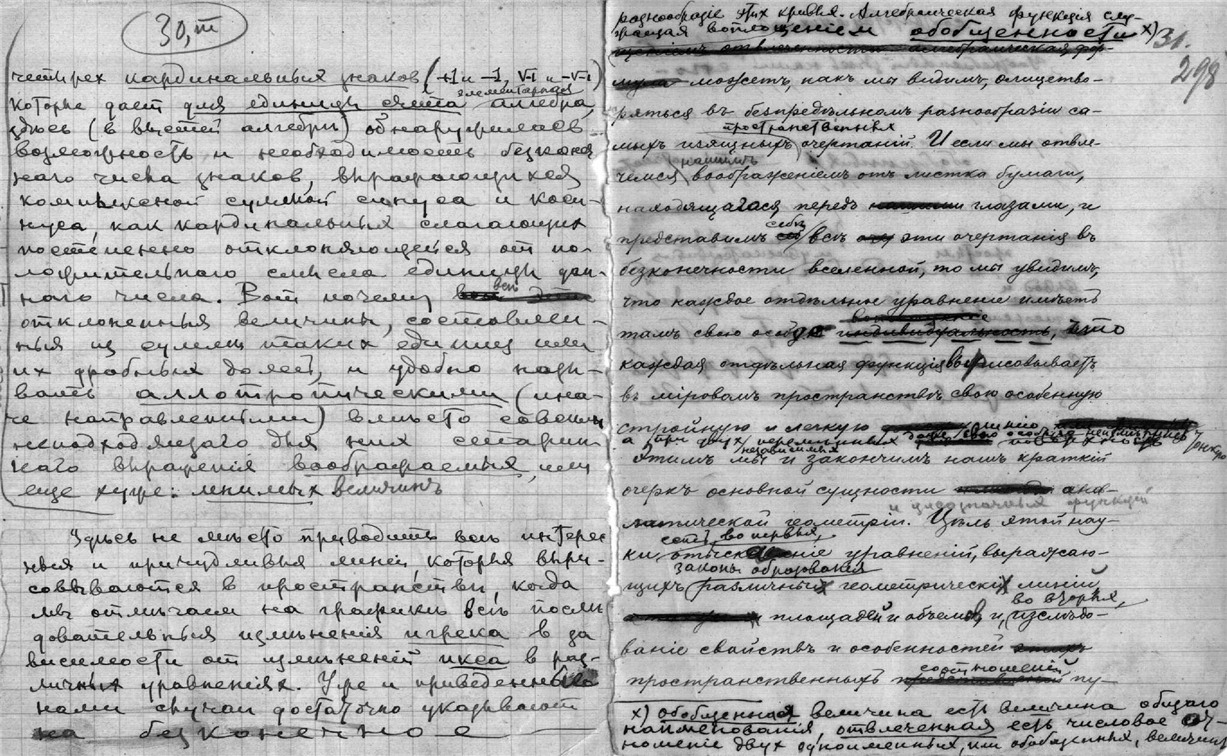 30, m
четырех кардинальных знаков (+1 и −1, √-1 и −√-1)
которые дает для единицы счета элементарная алгебра,
здесь (в высшей алгебре) обнаружилась
возможность и необходимость безконеч-
наго числа знаков, выражающихся
комплексной суммой синуса и коси-
нуса, как кардинальных слагающих
постепенно отклоняющейся от по-
ложительнаго смысла единицы дан-
наго числа. Вот почему все
отклоненныя величины, составлен-
ныя из суммы таких единиц или
их дробных долей, и удобно назы-
вать аллотропическими (ина-
че направленными) вместо совсем
неподходящаго для них старин-
наго выражения воображаемых, или
еще хуже: мнимых величинъ
Здѣсь не мѣсто приводить всѣ интерес-
ныя и причудливыя линеи, которыя выри-
совываются в пространствѣ, когда
мы отмѣчаем на графикѣ всѣ послѣ-
довательныя измѣненiя игрека в за
висимости от измѣненiй икса в раз-
личных уравненiях. Уже и приведенные
нами случаи достаточно указывают
на безконечное
31.
298
разнообразiе этих кривых. Алгебраическая функцiя слу-
жащая воплощенiем обобщенности x)
может, какъ мы видимъ, олицетво-
ряться въ безпредѣльномъ разнообразiи са-
мыхъ изящныхъ пространственныхъ очертанiй. И если мы отвле-
чемся нашимъ воображенiемъ отъ листка бумаги,
находящагося передъ глазами, и
представимъ себѣ всѣ эти очертанiя въ
безконечности вселенной, то мы увидимъ,
что каждое отдѣльное уравненiе имѣетъ
тамъ свою особую индивидуальность, что
каждая отдѣльная функцiя вырисовываетъ
въ мiровомъ пространствѣ свою особенную
стройную и легкую
а при двухъ независимыхъ переменныхъ
этимъ мы и закончимъ нашъ краткiй
очеркъ основной сущности ана-
литической геометрiи. Цѣль этой нау-
ки есть, во первых, отысканiе уравненiй, выражаю-
щихъ законы образованiя различныхъ геометрических линiй
площадей и объемовъ, и, во вторых, изслѣдо-
ванiе свойствъ и особенностей
пространственныхъ соотношенiй пу-
x) обобщенная величина есть величина общаго
наименованiя, отвлеченная есть числовое от-
ношенiе двух одноименных, или обобщенных, величин